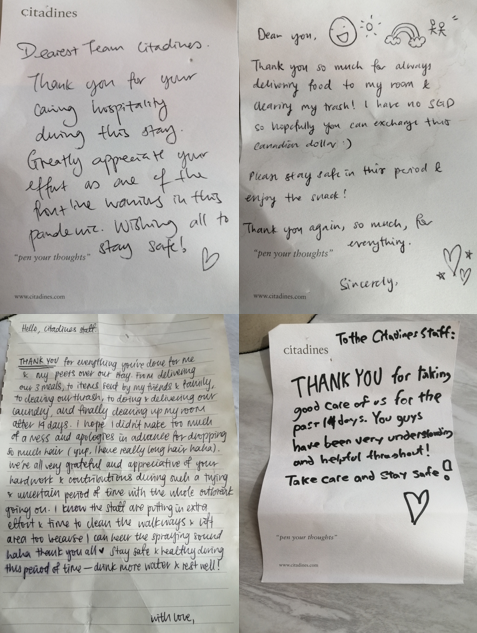 citadines
Dearest Team Citadines.
Thank you for your
caring hospitality
during this stay.
Greatly appreciate your
effort as one of the
frontline warriors in this
pandemic. Wishing all to
stay safe!
"pen your thoughts"
www.citadines.com
Dear you,
Thank you so much for always
delivering food to my room &
clearing my trash! I have no SGD
so hopefully you can exchange this
Canadian dollar :)
Please stay safe in this period &
enjoy the snack!
Thank you again, so much, for
everything.
"pen your thoughts"
Sincerely,
www.citadines.com
Hello, Citadines staff
THANK YOU for everything you've done for me
& my peers over our stay. From delivering
our 3 meals, to items sent by my friends & family,
to clearing our thrash, to doing & delivering our
laundry, and finally cleaning up my room
after 14 days. I hope I didn't make too much
of a mess and apologies in advance for dropping
so much hair (yup, I have really long hair haha).
We're all very grateful and appreciative of your
hardwork & contributions during such a trying
& uncertain period of time with the whole outbreak
going on. I know the staff are putting in extra
effort & time to clean the walkways & lift
area too because I can hear the spraying sound
haha thank you all ♥ Stay safe & healthy during
this period of time — drink more water & rest well!
With love,
To the Citadines Staff:
citadines
THANK YOU for taking
good care of us for the
past 14 days. You guys
have been very understanding
and helpful throughout!
Take care and Stay Safe!
"pen your thoughts"
www.citadines.com